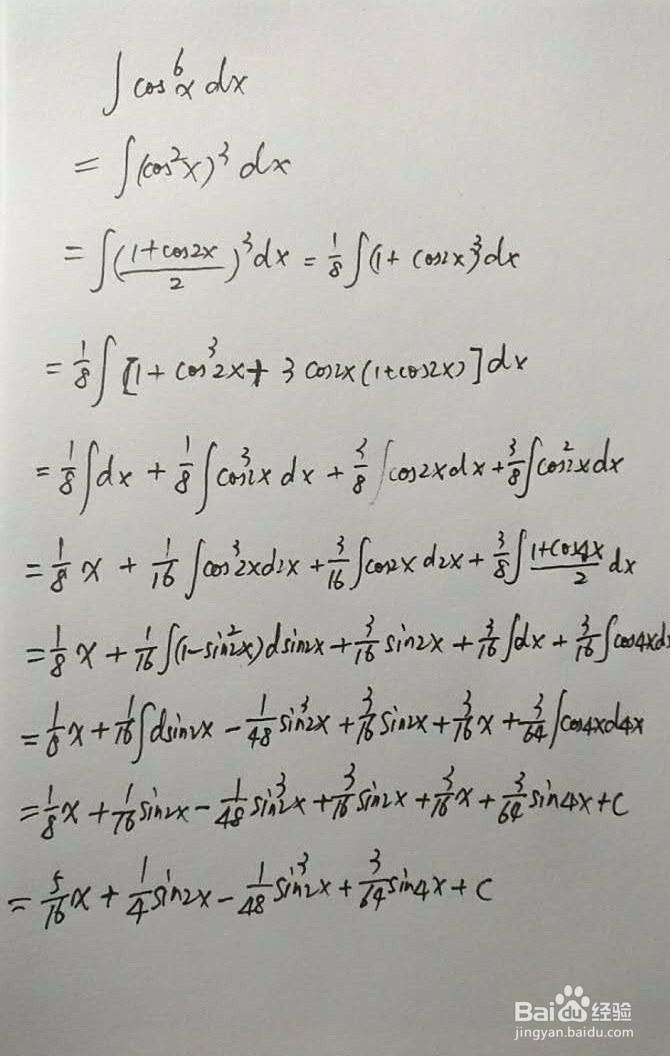 ∫ cos⁶x dx
= ∫(cos²x)³ dx
= ∫((1+cos2x)/2)³dx = 1/8 ∫(1+ cos2x)³dx
= 1/8 ∫ [1 + cos³2x + 3 cos2x(1+cos2x)]dx
= 1/8 ∫dx + 1/8 ∫cos³2x dx + 3/8 ∫cos2xdx + 3/8 ∫cos²2xdx
= 1/8 x + 1/16 ∫cos³2xd2x + 3/16 ∫cos2x d2x + 3/8 ∫(1+cos4x)/2 dx
= 1/8 x + 1/16 ∫(1-sin²2x)dsin2x + 3/16 sin2x + 3/16 ∫dx + 3/16 ∫cos4xdx
= 1/8 x + 1/16 ∫dsin2x - 1/48 sin³2x + 3/16 sin2x + 3/16 x + 3/64 ∫cos4xd4x
= 1/8 x + 1/16 sin2x - 1/48 sin³2x + 3/16 sin2x + 3/16 x + 3/64 sin4x + C
= 5/16 x + 1/4 sin2x - 1/48 sin³2x + 3/64 sin4x + C
Bai du 经验
jingyan.baidu.com